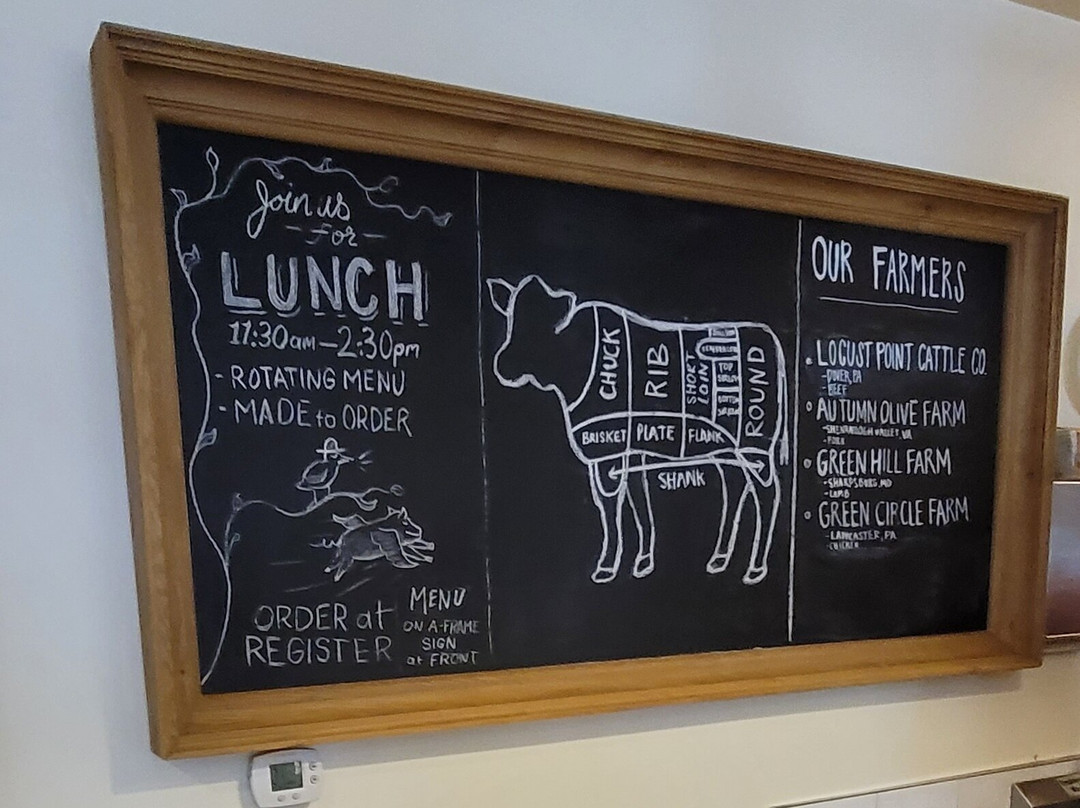 Join us
-for-
LUNCH
11:30am-2:30pm
- ROTATING MENU
- MADE to ORDER
ORDER at
REGISTER
MENU
ON A-FRAME
SIGN
at FRONT
CHUCK
RIB
SHORT
LOIN
TOP
SIRLOIN
BOTTOM
SIRLOIN
ROUND
BRISKET
PLATE
FLANK
SHANK
OUR FARMERS
• LOCUST POINT CATTLE CO.
-DOVER, PA
-BEEF
• AUTUMN OLIVE FARM
-SHENANDOAH VALLEY, VA
-PORK
• GREEN HILL FARM
-SHARPSBURG, MD
-LAMB
• GREEN CIRCLE FARM
-LANCASTER, PA
-CHICKEN